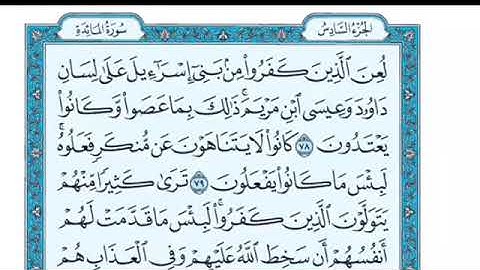 سُورَةُ المَائدَةِ الجُزءُ السَّادِسُ
لُعِنَ ٱلَّذِينَ كَفَرُواْ مِنۢ بَنِىٓ إِسْرَٰٓءِيلَ عَلَىٰ لِسَانِ
دَاوُۥدَ وَعِيسَى ٱبْنِ مَرْيَمَ ۚ ذَٰلِكَ بِمَا عَصَواْ وَّكَانُواْ
يَعْتَدُونَ ٧٨ كَانُواْ لَا يَتَنَاهَوْنَ عَن مُّنكَرٍ فَعَلُوهُ ۚ
لَبِئْسَ مَا كَانُواْ يَفْعَلُونَ ٧٩ تَرَىٰ كَثِيرًا مِّنْهُمْ
يَتَوَلَّوْنَ ٱلَّذِينَ كَفَرُواْ ۚ لَبِئْسَ مَا قَدَّمَتْ لَهُمْ
أَنفُسُهُمْ أَن سَخِطَ ٱللَّهُ عَلَيْهِمْ وَفِى ٱلْعَذَابِ هُمْ